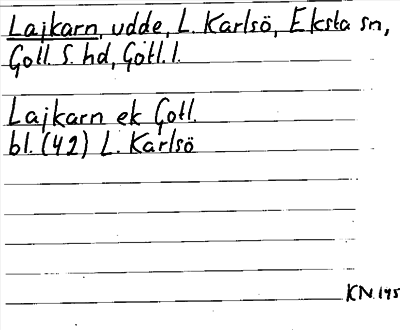 Lajkarn, udde, L. Karlsö, Eksta sn,
Gotl. S. hd, Gotl. l.
Lajkarn ek Gotl.
bl. (42) L. Karlsö
KN.145